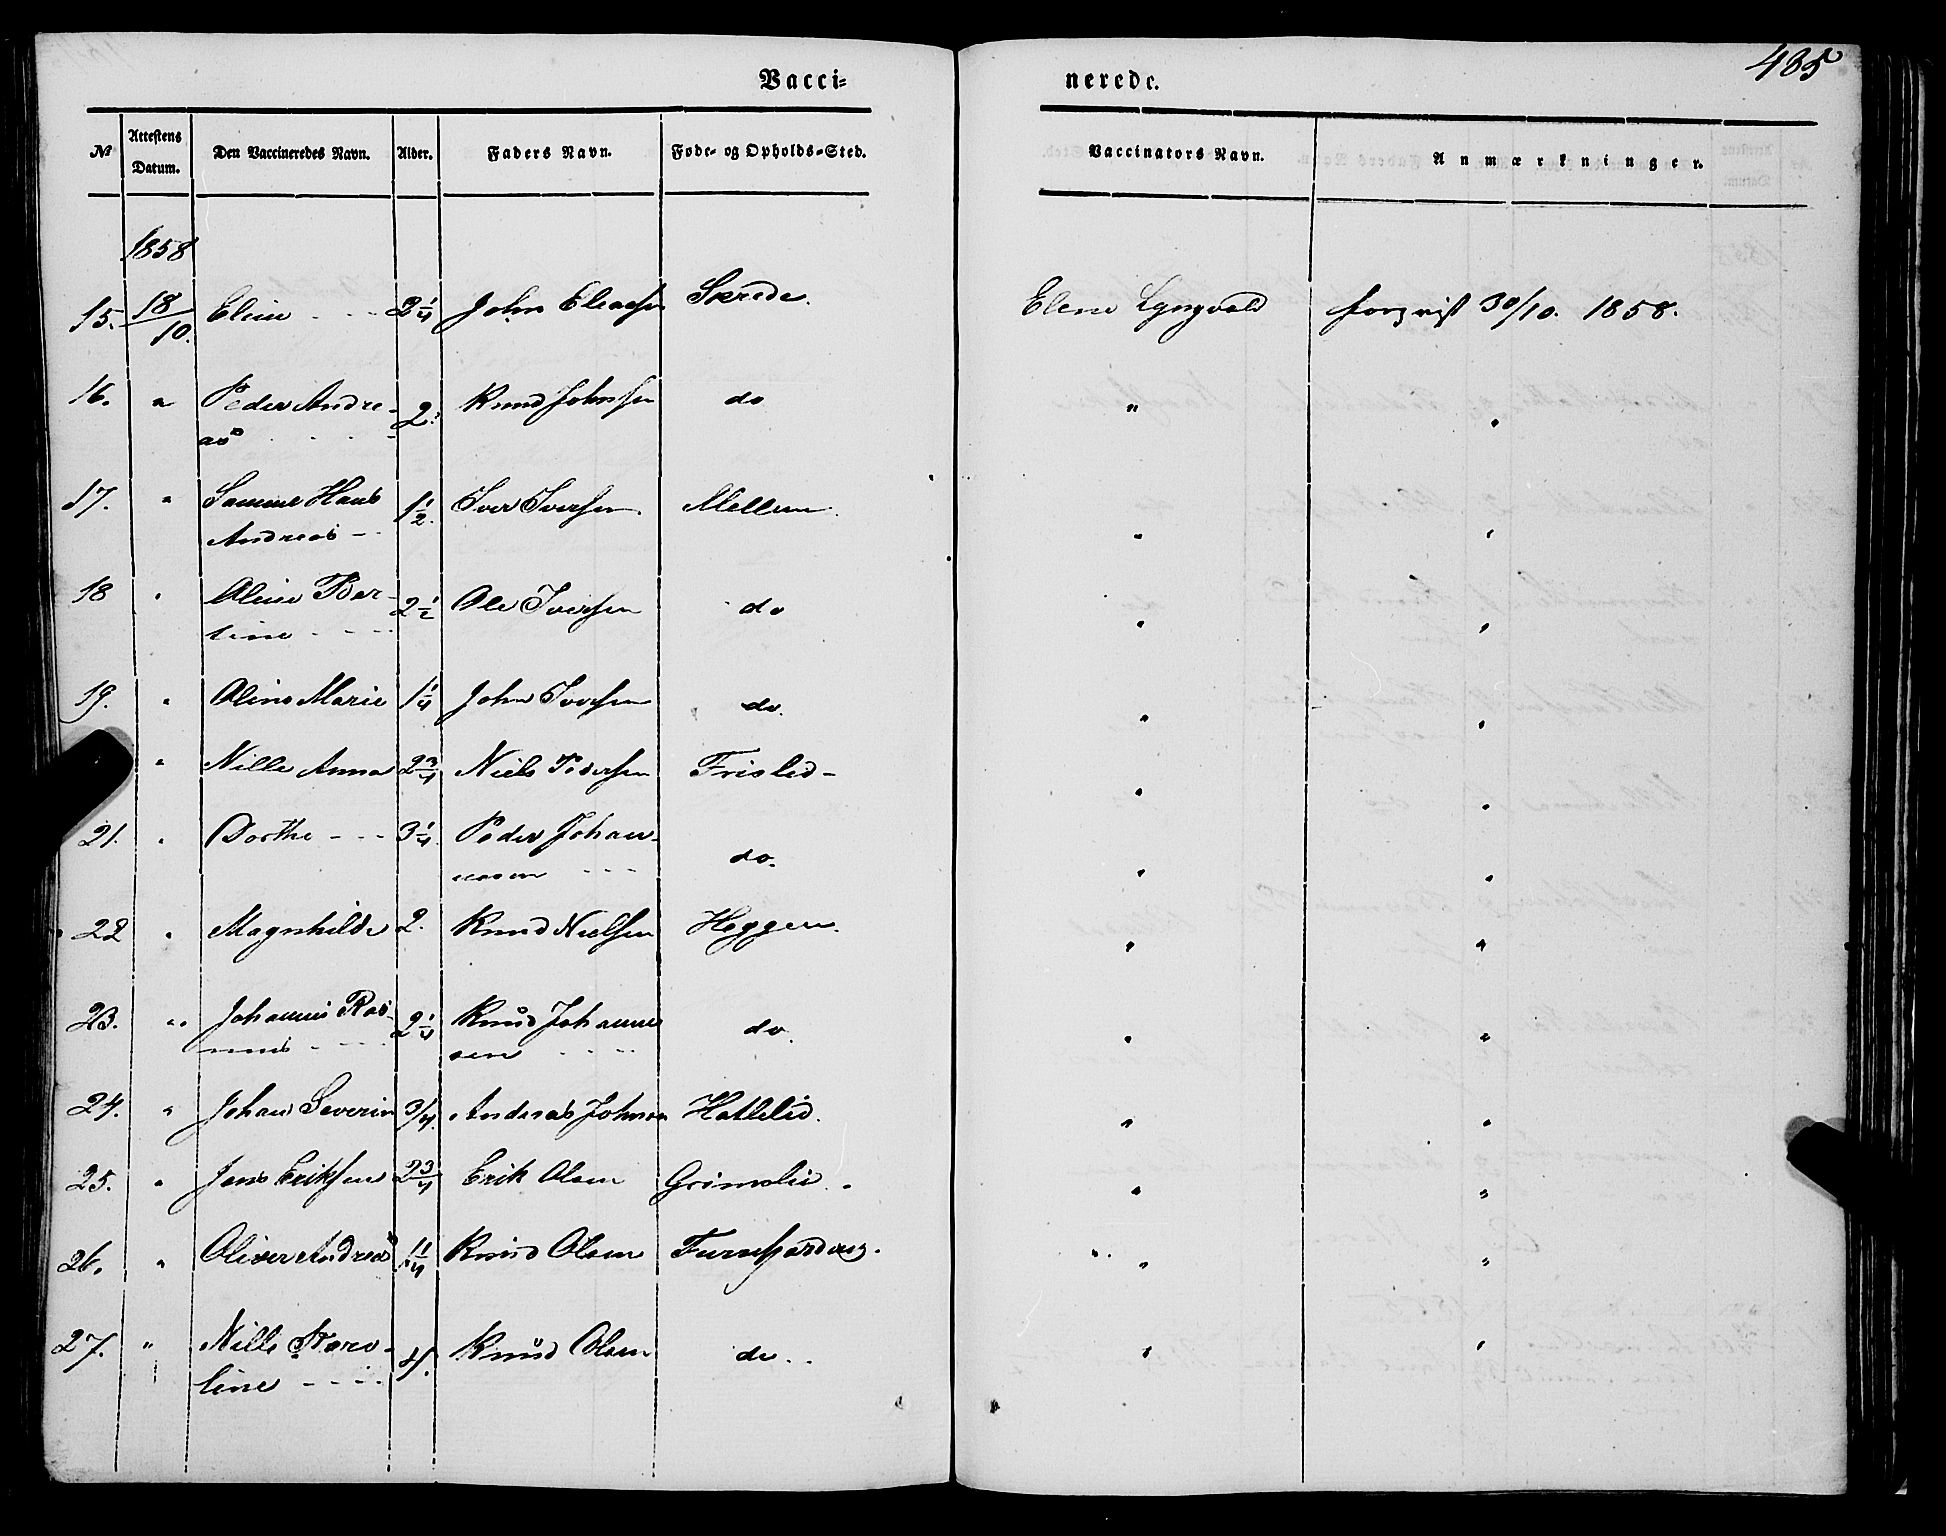 485
Vacci=
nerede.
№ Attestens Datum. Den Vaccineredes Navn. Alder. Faders Navn. Føde- og Opholds-Sted. Vaccinators Navn. Anmærkninger.
1858
15. 18/10. Eline - - - 2 1/4 John Eleasen Skrede. Elene Lyngvold 30/10. 1858.
16. " Peder Andre- 2. Knud Johnsen do " "
as - - -
17. " Hans 1 1/2. Iver Iversen. Mellem. " "
Andreas - -
18 " Oline Ber- 2 1/2 Ole Iversen do " "
tine - - -
19. " Oline Marie 1 1/4 John Iversen do. " "
" Nille Anna 2 3/4 Niels Pedersen Frislid - " "
21. " Dorthe - - - 3 1/4. Peder Johan- do. " "
nesen - - -
22 " Magnhilde 2. Knud Nielsen Heggem. " "
23. " Johannes Ras- 2 1/4 Knud Johanne do. " "
mus - - - sen - - -
24. " Johan Severin 3/4. Andreas Johnsen Hatlelid. " "
25. " Jens Eriksen 2 3/4 Erik Olsen Grimslid. " "
26. " Oliver Andreas 1 1/4 Knud Olsen " "
27. " Nille Karo- 4. Knud Olsen do. " "
line - - -